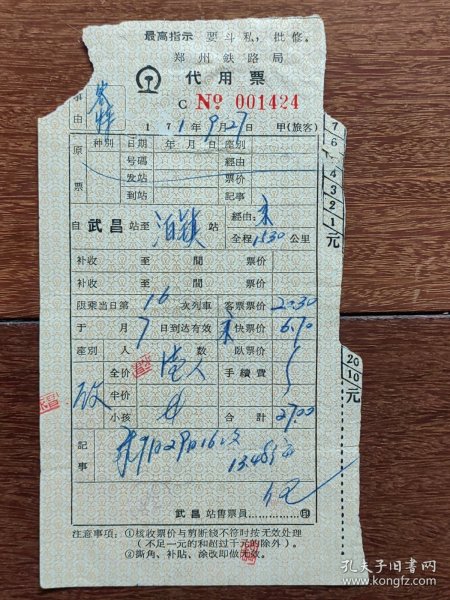 最高指示 要斗私，批修。
郑州鉄路局
代用票
C № 001424
事由
1971年9月27日 甲(旅客)
原票 种别 日期 年 月 日 座别
号码 經由
发站 票价
到站 記事
7
6
4
3
2
1
元
自 武昌 站至 泊鎮 站 經由 京
全程 1530 公里
补收 至 間 票价
补收 至 間 票价
限乘当日第 16 次列車 客票票价 20.30
于 月 7 日到达有效 快票价 6.70
座别 人数 臥票价
全价 壹人 手續費
半价
小孩 合計 27.00
20
10
元
記事
武昌 站售票員 印
注意事項：①核收票价与剪断綫不符时按无效处理
（不足一元的和超过千元的除外）。
②撕角、补貼、涂改即做无效。
孔夫子旧书网
book.kongfz.com